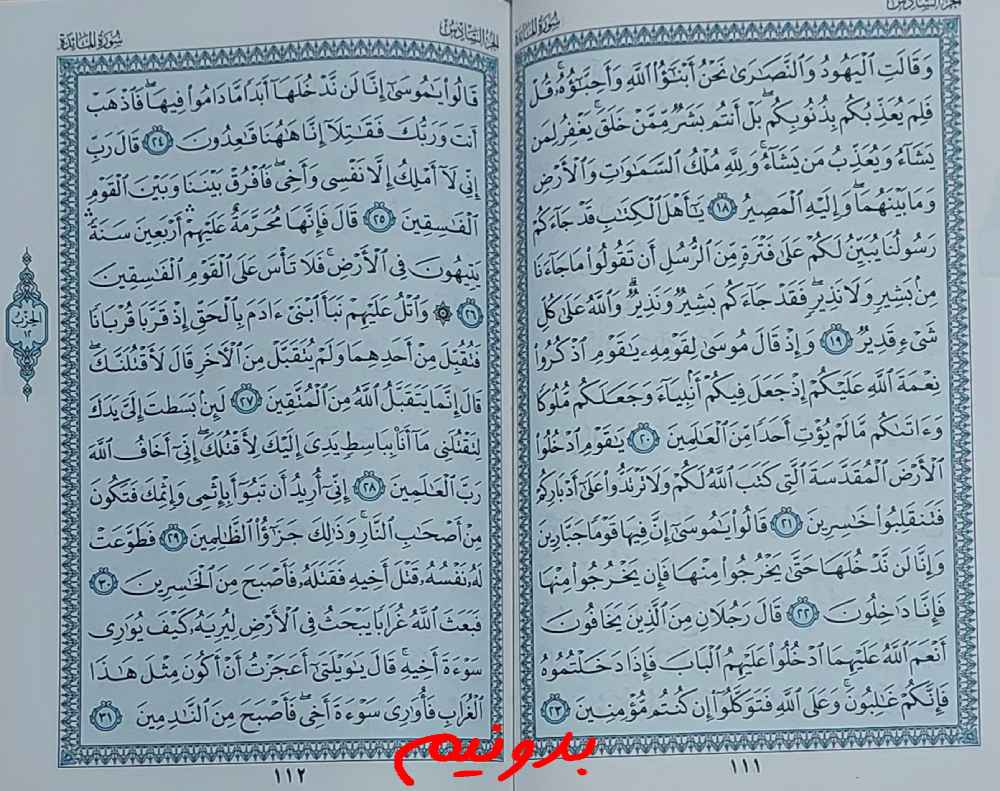 الجزء السادس
سورة المائدة
وَقَالَتِ ٱلْيَهُودُ وَٱلنَّصَٰرَىٰ نَحْنُ أَبْنَٰٓؤُا۟ ٱللَّهِ وَأَحِبَّٰٓؤُهُۥ ۚ قُلْ
فَلِمَ يُعَذِّبُكُم بِذُنُوبِكُم ۖ بَلْ أَنتُم بَشَرٌ مِّمَّنْ خَلَقَ ۚ يَغْفِرُ لِمَن
يَشَآءُ وَيُعَذِّبُ مَن يَشَآءُ ۚ وَلِلَّهِ مُلْكُ ٱلسَّمَٰوَٰتِ وَٱلْأَرْضِ
وَمَا بَيْنَهُمَا ۖ وَإِلَيْهِ ٱلْمَصِيرُ ١٨ يَٰٓأَهْلَ ٱلْكِتَٰبِ قَدْ جَآءَكُمْ
رَسُولُنَا يُبَيِّنُ لَكُمْ عَلَىٰ فَتْرَةٍ مِّنَ ٱلرُّسُلِ أَن تَقُولُوا۟ مَا جَآءَنَا
مِنۢ بَشِيرٍ وَلَا نَذِيرٍ ۖ فَقَدْ جَآءَكُم بَشِيرٌ وَنَذِيرٌ ۗ وَٱللَّهُ عَلَىٰ كُلِّ
شَىْءٍ قَدِيرٌ ١٩ وَإِذْ قَالَ مُوسَىٰ لِقَوْمِهِۦ يَٰقَوْمِ ٱذْكُرُوا۟
نِعْمَةَ ٱللَّهِ عَلَيْكُمْ إِذْ جَعَلَ فِيكُمْ أَنۢبِيَآءَ وَجَعَلَكُم مُّلُوكًا
وَءَاتَىٰكُم مَّا لَمْ يُؤْتِ أَحَدًا مِّنَ ٱلْعَٰلَمِينَ ٢٠ يَٰقَوْمِ ٱدْخُلُوا۟
ٱلْأَرْضَ ٱلْمُقَدَّسَةَ ٱلَّتِى كَتَبَ ٱللَّهُ لَكُمْ وَلَا تَرْتَدُّوا۟ عَلَىٰٓ أَدْبَارِكُمْ
فَتَنقَلِبُوا۟ خَٰسِرِينَ ٢١ قَالُوا۟ يَٰمُوسَىٰٓ إِنَّ فِيهَا قَوْمًا جَبَّارِينَ
وَإِنَّا لَن نَّدْخُلَهَا حَتَّىٰ يَخْرُجُوا۟ مِنْهَا فَإِن يَخْرُجُوا۟ مِنْهَا
فَإِنَّا دَٰخِلُونَ ٢٢ قَالَ رَجُلَانِ مِنَ ٱلَّذِينَ يَخَافُونَ
أَنْعَمَ ٱللَّهُ عَلَيْهِمَا ٱدْخُلُوا۟ عَلَيْهِمُ ٱلْبَابَ فَإِذَا دَخَلْتُمُوهُ
فَإِنَّكُمْ غَٰلِبُونَ ۚ وَعَلَى ٱللَّهِ فَتَوَكَّلُوٓا۟ إِن كُنتُم مُّؤْمِنِينَ ٢٣
١١١
الجزء السادس
سورة المائدة
قَالُوا۟ يَٰمُوسَىٰٓ إِنَّا لَن نَّدْخُلَهَآ أَبَدًا مَّا دَامُوا۟ فِيهَا ۖ فَٱذْهَبْ
أَنتَ وَرَبُّكَ فَقَٰتِلَآ إِنَّا هَٰهُنَا قَٰعِدُونَ ٢٤ قَالَ رَبِّ
إِنِّى لَآ أَمْلِكُ إِلَّا نَفْسِى وَأَخِى ۖ فَٱفْرُقْ بَيْنَنَا وَبَيْنَ ٱلْقَوْمِ
ٱلْفَٰسِقِينَ ٢٥ قَالَ فَإِنَّهَا مُحَرَّمَةٌ عَلَيْهِمْ ۛ أَرْبَعِينَ سَنَةً ۛ
يَتِيهُونَ فِى ٱلْأَرْضِ ۚ فَلَا تَأْسَ عَلَى ٱلْقَوْمِ ٱلْفَٰسِقِينَ
٢٦ ۞ وَٱتْلُ عَلَيْهِمْ نَبَأَ ٱبْنَىْ ءَادَمَ بِٱلْحَقِّ إِذْ قَرَّبَا قُرْبَانًا
فَتُقُبِّلَ مِنْ أَحَدِهِمَا وَلَمْ يُتَقَبَّلْ مِنَ ٱلْءَاخَرِ قَالَ لَأَقْتُلَنَّكَ ۖ
قَالَ إِنَّمَا يَتَقَبَّلُ ٱللَّهُ مِنَ ٱلْمُتَّقِينَ ٢٧ لَئِنۢ بَسَطتَ إِلَىَّ يَدَكَ
لِتَقْتُلَنِى مَآ أَنَا۠ بِبَاسِطٍ يَدِىَ إِلَيْكَ لِأَقْتُلَكَ ۖ إِنِّىٓ أَخَافُ ٱللَّهَ
رَبَّ ٱلْعَٰلَمِينَ ٢٨ إِنِّىٓ أُرِيدُ أَن تَبُوٓأَ بِإِثْمِى وَإِثْمِكَ فَتَكُونَ
مِنْ أَصْحَٰبِ ٱلنَّارِ ۚ وَذَٰلِكَ جَزَٰٓؤُا۟ ٱلظَّٰلِمِينَ ٢٩ فَطَوَّعَتْ
لَهُۥ نَفْسُهُۥ قَتْلَ أَخِيهِ فَقَتَلَهُۥ فَأَصْبَحَ مِنَ ٱلْخَٰسِرِينَ ٣٠
فَبَعَثَ ٱللَّهُ غُرَابًا يَبْحَثُ فِى ٱلْأَرْضِ لِيُرِيَهُۥ كَيْفَ يُوَٰرِى
سَوْءَةَ أَخِيهِ ۚ قَالَ يَٰوَيْلَتَىٰٓ أَعَجَزْتُ أَنْ أَكُونَ مِثْلَ هَٰذَا
ٱلْغُرَابِ فَأُوَٰرِىَ سَوْءَةَ أَخِى ۖ فَأَصْبَحَ مِنَ ٱلنَّٰدِمِينَ ٣١
١١٢
الحزب
١٢
بدونيم